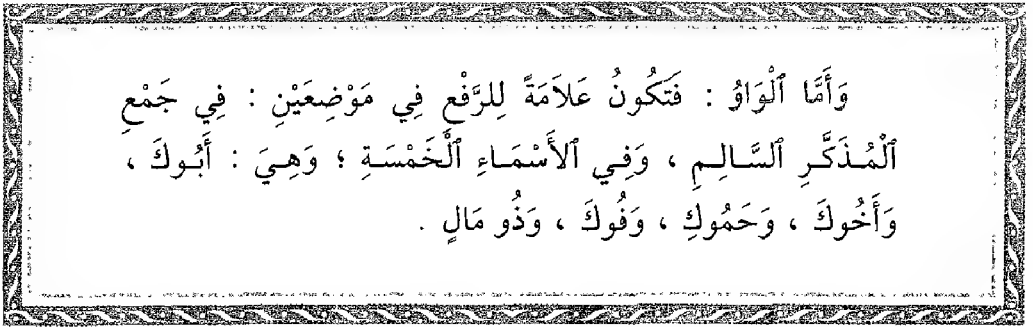 وَأَمَّا ٱلْوَاوُ : فَتَكُونُ عَلاَمَةً لِلرَّفْعِ فِي مَوْضِعَيْنِ : فِي جَمْعِ
ٱلْمُذَكَّرِ ٱلسَّالِمِ ، وَفِي ٱلأَسْمَاءِ ٱلْخَمْسَةِ ؛ وَهِيَ : أَبُوكَ ،
وَأَخُوكَ ، وَحَمُوكِ ، وَفُوكَ ، وَذُو مَالٍ .